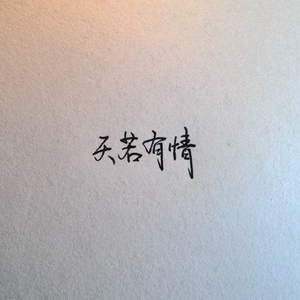 天若有情